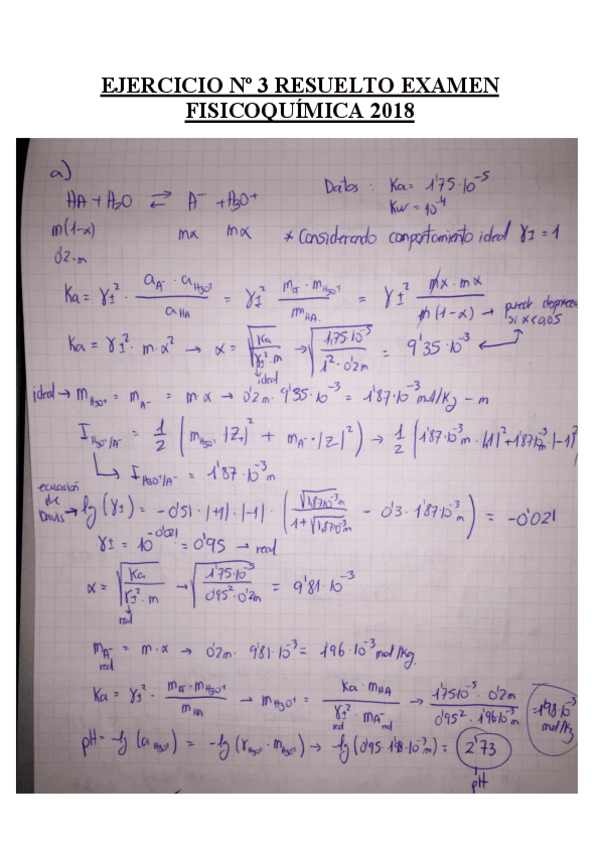 EJERCICIO Nº 3 RESUELTO EXAMEN
FISICOQUÍMICA 2018
a)
Datos : Ka = 1'75·10⁻⁵
HA + H₂O ⇄ A⁻ + H₃O⁺
Kw = 10⁻⁴
m(1-α) mα mα * Considerando comportamiento ideal γ± = 1
0'2·m
Ka = γ±² · (a_A⁻ · a_H₃O⁺) / a_HA = γ±² (m_A⁻ · m_H₃O⁺) / m_HA = γ±² (mα · mα) / (m(1-α)) → puede
si α<0,05
Ka = γ±² · m · α² → α = √(Ka / (γ±² · m)) → √(1,75·10⁻⁵ / (1² · 0'2m)) = 9'35·10⁻³
ideal
ideal → m_H₃O⁺ = m_A⁻ = m·α → 0'2m · 9'35·10⁻³ = 1'87·10⁻³ mol/Kg - m
I_H₃O⁺/A⁻ = 1/2 (m_H₃O⁺ · |Z₊|² + m_A⁻ · |Z|²) → 1/2 (1'87·10⁻³m · |1|² + 1'87·10⁻³m · |-1|²
↳ I_H₃O⁺/A⁻ = 1'87·10⁻³ m
ecuación
de
Davis → lg(γ±) = -0'51 · |+1| · |-1| · (√(1,87·10⁻³m) / (1+√(1,87·10⁻³m)) - 0'3 · 1'87·10⁻³m) = -0'021
γ± = 10^(-0'021) = 0'95 → real
α = √(Ka / (γ±² · m)) → √(1'75·10⁻⁵ / (0'95² · 0'2m)) = 9'81·10⁻³
real
m_A⁻ = m·α → 0'2m · 9'81·10⁻³ = 1'96·10⁻³ mol/Kg.
real
Ka = γ±² · (m_A⁻ · m_H₃O⁺) / m_HA → m_H₃O⁺ = (Ka · m_HA) / (γ±² · m_A⁻) → (1'75·10⁻⁵ · 0'2m) / (0'95² · 1'96·10⁻³m) = 1'98·10⁻³ mol/Kg
real real
pH = -lg(a_H₃O⁺) = -lg(γ_H₃O⁺ · m_H₃O⁺) → -lg(0'95 · 1'98·10⁻³m) = 2'73
pH